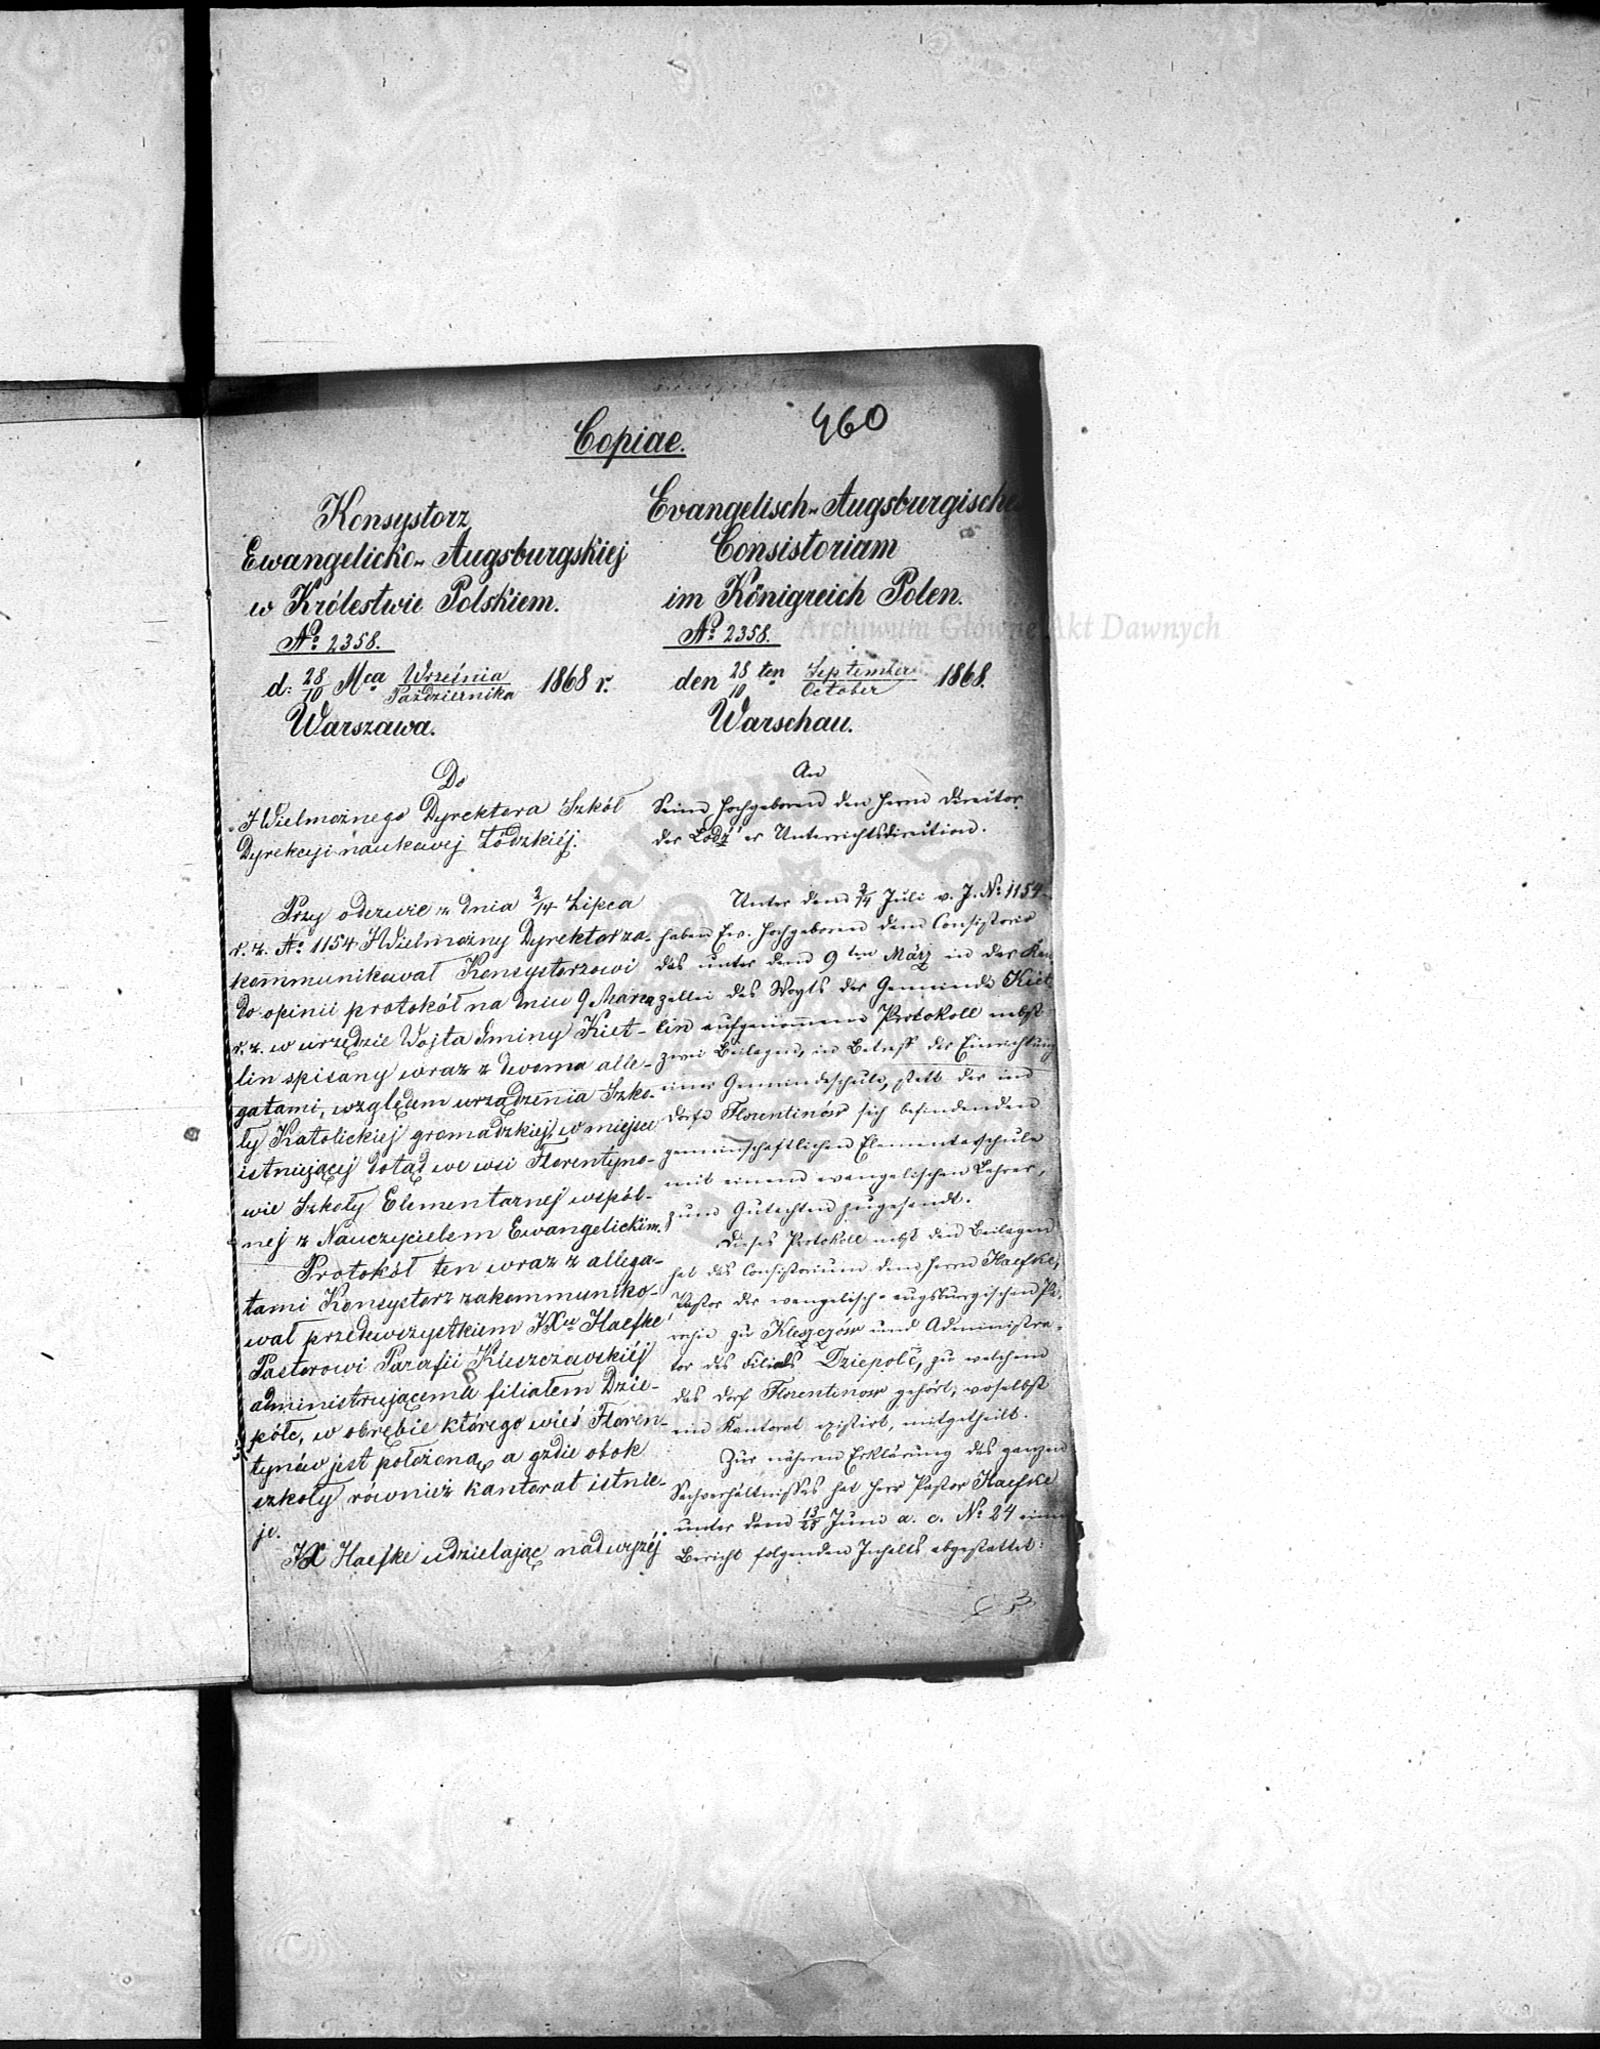 460
Copiae.
Konsystorz
Ewangelicko-Augsburgskiej
w Królestwie Polskiem.
No 2358.
d: 28/10 Mca Września/Października 1868 r.
Warszawa.
Do
JWielmożnego Dyrektora Szkół
Dyrekcyi naukowej Łódzkiéj.
Przy odezwie z dnia 2/14 Lipca
r. z. No 1154 JWielmożny Dyrektor za-
kommunikował Konsystorzowi
do opinii protokół na dniu 9 Marca
r. z. w urzędzie Wojta Gminy Kiet-
lin spisany wraz z dwoma alle-
gatami, względem urządzenia Szko-
ły Katolickiej gromadzkiej, w miejsce
istniejącej dotąd we wsi Florentyno-
wie Szkoły Elementarnej wspól-
nej z Nauczycielem Ewangelickim.
Protokół ten wraz z allega-
tami Konsystorz zakommuniko-
wał przedewszystkiem JXu Haefke
Pastorowi Parafii Kleszczowskiéj
administrującemu filiałem Dzie-
półć, w obrębie którego wieś Floren-
tynów jest położona, a gdzie obok
szkoły również kantorat istnie-
je.
JX Haefke udzielając nadwyżéj
Evangelisch-Augsburgisches
Consistorium
im Königreich Polen.
No 2358.
den 28/10 ten September/October 1868.
Warschau.
An
Seine Hochgeboren den Herrn Director
der Łódź'er Unterrichtsdirection.
Unter dem 2/14 Juli v. J. No 1154
haben Ew. Hochgeboren dem Consistorio
das unter dem 9ten März in der Kan
zellei des Vogts der Gemeinde Kiet
lin aufgenommene Protokoll nebst
zwei Beilagen, in Betreff der Einrichtung
einer Gemeindeschule, statt der im
Dorfe Florentinów sich befindenden
gemeinschaftlichen Elementarschule
mit einem evangelischen Lehrer,
zum Gutachten zugesandt.
Dieses Protokoll nebst den Beilagen
hat das Consistorium dem Herrn Haefke,
Pastor der evangelisch-augsburgischen Pa-
rochie zu Kleszczów und Administra-
tor des Filials Dziepolć, zu welchem
das Dorf Florentinow gehört, woselbst
ein Kantorat existirt, mitgetheilt.
Zur nähern Erklärung des ganzen
Sachverhältnisses hat Herr Pastor Haefke
unter dem 13/25 Juni a. c. No 24 einen
Bericht folgenden Inhalts abgestattet:
Archiwum Główne Akt Dawnych